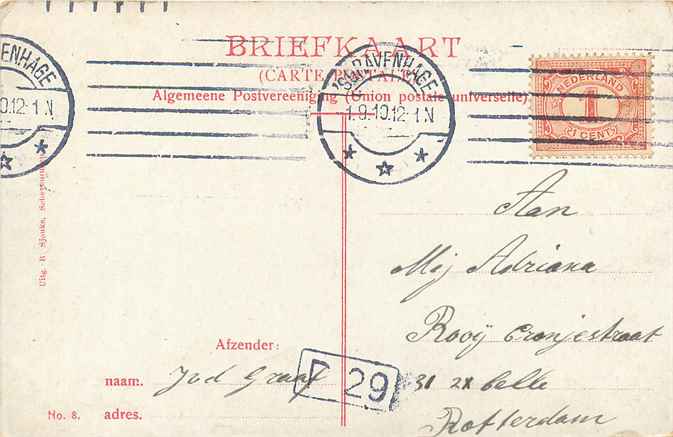 BRIEFKAART
(CARTE POSTALE)
Algemeene Postvereeniging (Union postale universelle)
'S GRAVENHAGE
1.9-10.12-1 N
ENHAGE
0.12-1 N
NEDERLAND
1
CENT
Uitg. B Sjouks,
Aan
Mej Adriana
Rooÿ Cronjestraat
31 2x belle
Rotterdam
Afzender:
naam. Jvd Graaf
29
No. 8. adres.